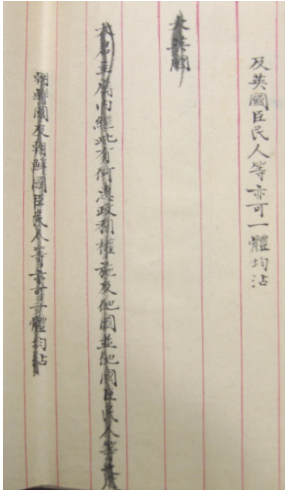 及英國臣民人等亦可一體均沾
大英國
大君主內經此有何惠政利權施及他國並他國臣民人等
朝鮮國及朝鮮國臣民人等亦可一體均沾